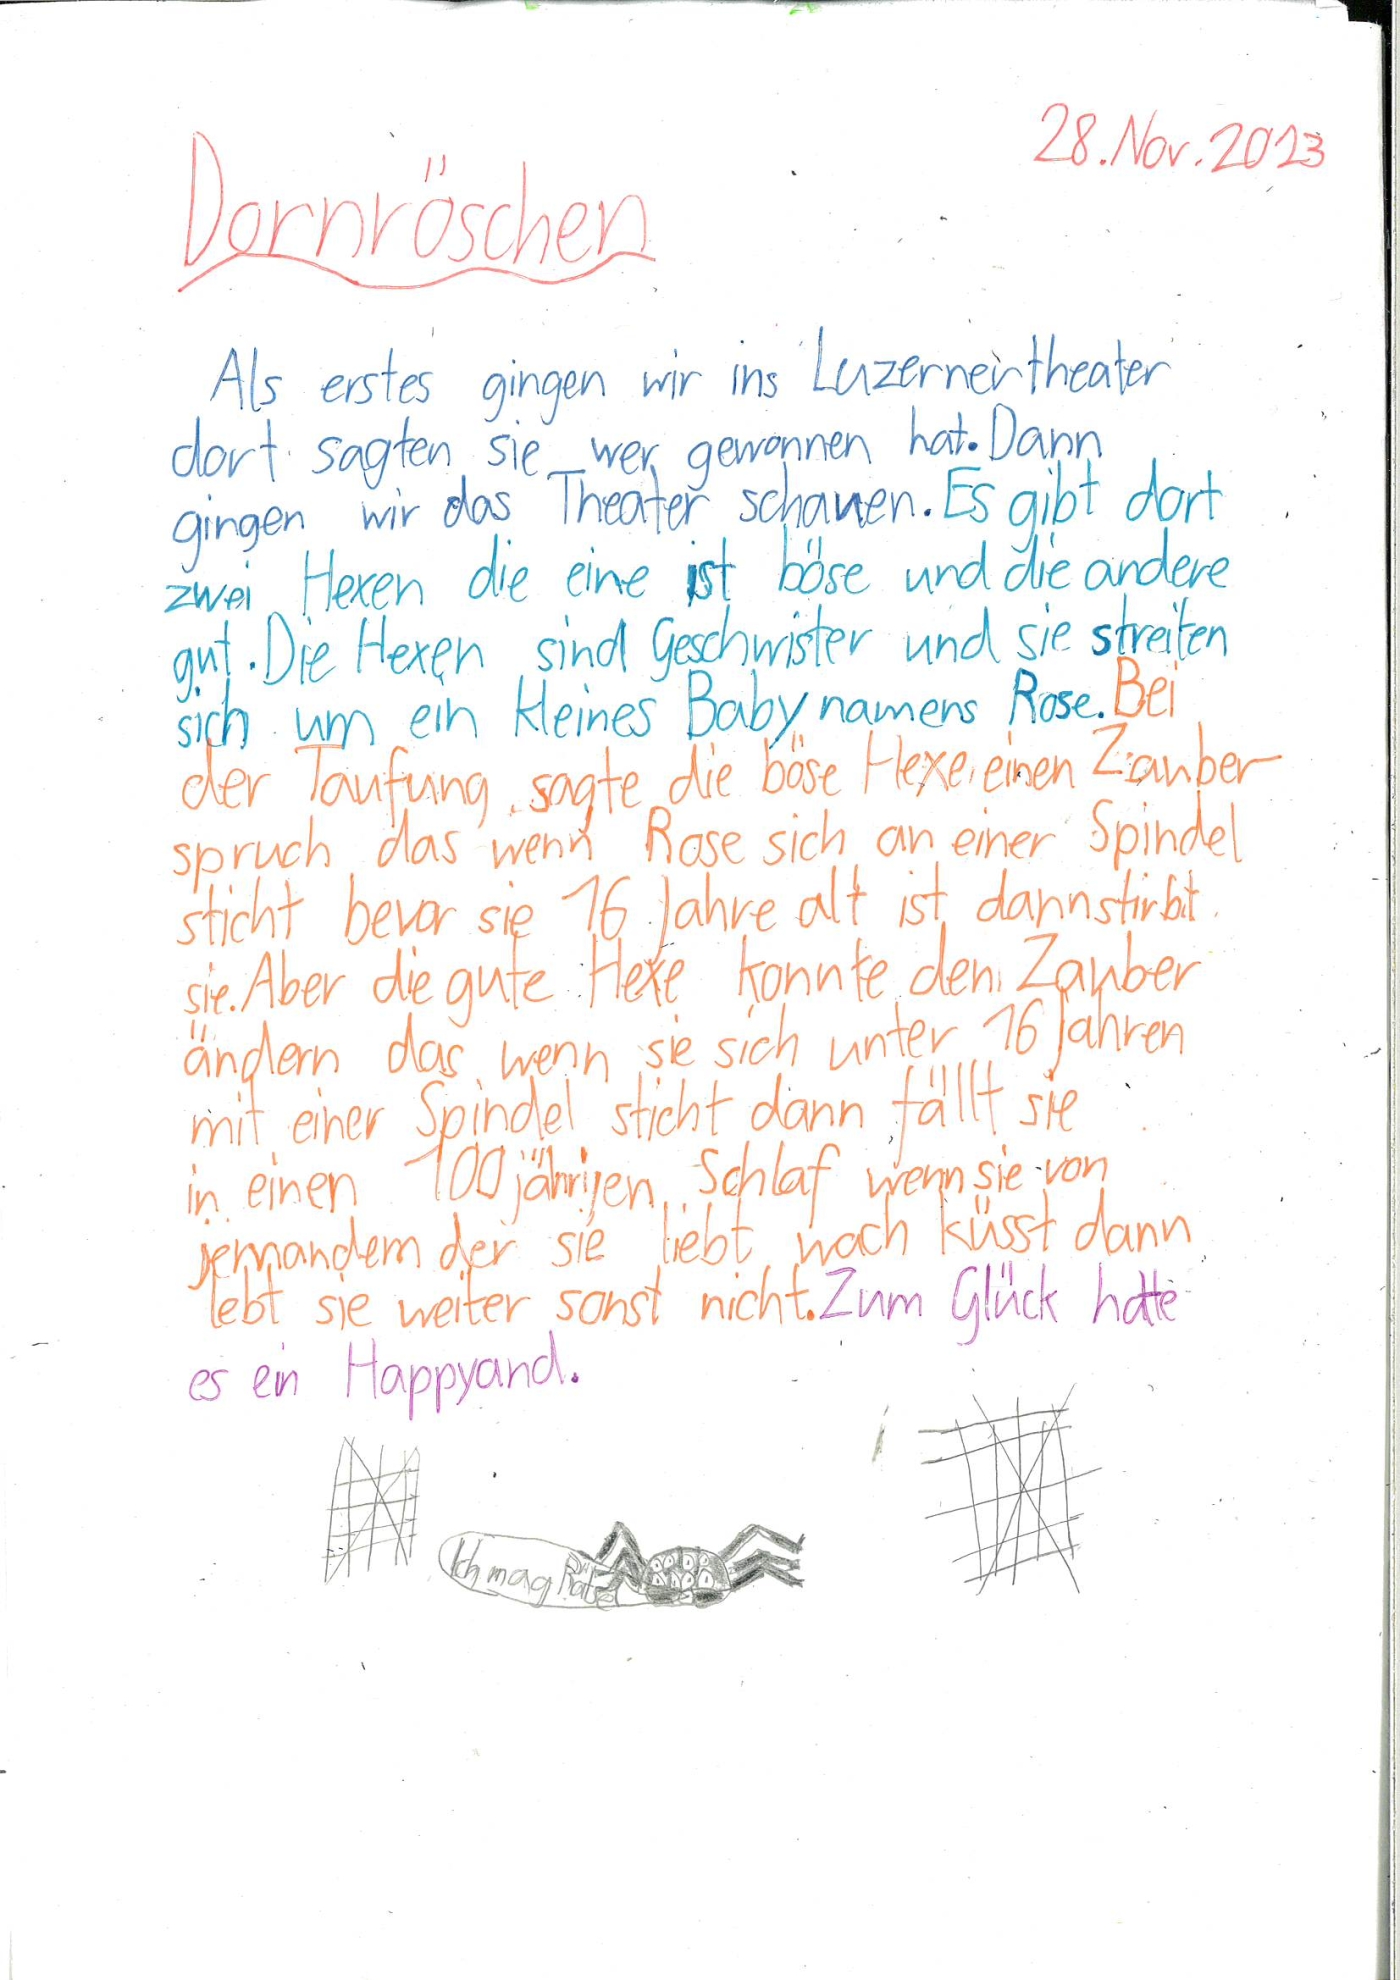 28.Nov.2023
Dornröschen
Als erstes gingen wir ins Luzernertheater
dort sagten sie wer gewonnen hat. Dann
gingen wir das Theater schauen. Es gibt dort
zwei Hexen die eine ist böse und die andere
gut. Die Hexen sind Geschwister und sie streiten
sich um ein kleines Baby namens Rose. Bei
der Taufung sagte die böse Hexe einen Zauber-
spruch das wenn Rose sich an einer Spindel
sticht bevor sie 16 Jahre alt ist dann stirbt
sie. Aber die gute Hexe konnte den Zauber
ändern das wenn sie sich unter 16 Jahren
mit einer Spindel sticht dann fällt sie
in einen 100 jährijen Schlaf wenn sie von
jemandem der sie liebt wach küsst dann
lebt sie weiter sonst nicht. Zum Glück hatte
es ein Happyand.
Ich mag Rätsel